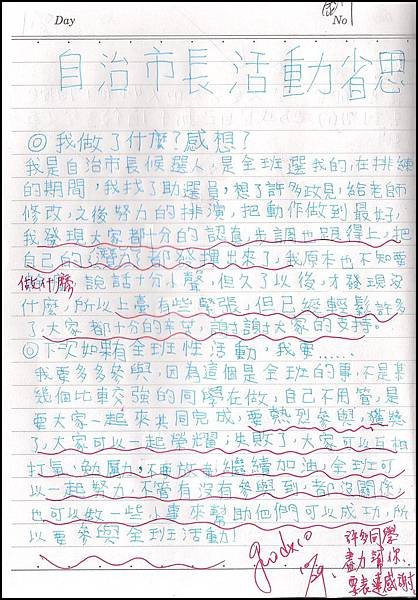 Day
No
自治市長活動省思
◎我做了什麼?感想?
我是自治市長候選人,是全班選我的,在排練
的期間,我找了助選員,想了許多政見,給老師
修改,之後努力的排演,把動作做到最好,
我發現大家都十分的認真,步調也跟得上,把
自己的潛力都發揮出來了,我原本也不知要
做什麼 說話十分小聲,但久了以後,才發現沒
什麼,所以上臺有些緊張,但已經輕鬆許多
了,大家都十分的辛苦,謝謝大家的支持。
◎下次如果有全班性活動,我要……
我要多多參與,因為這個是全班的事,不是某
幾個比較強的同學在做,自己不用管,是
要大家一起來共同完成,要熱烈參與,獲獎
了,大家可以一起榮耀;失敗了,大家可以互相
打氣、勉勵,不要放棄,繼續加油,全班可
以一起努力,不管有沒有參與到,都沒關係,
也可以做一些小事來幫助他們可以成功,所
以要參與全班活動!
good
10/29.
許多同學
盡力幫你、
要表達感謝